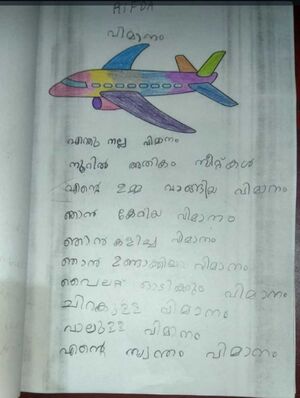 AIFDA
വിമാനം
എന്തു നല്ല വിമാനം
നൂറിൽ അതികം സീറ്റ്കൾ
എന്റെ ഉമ്മ വാങ്ങിയ വിമാനം
ഞാൻ കേറിയ വിമാനം
ഞാൻ കളിച്ച വിമാനം
ഞാൻ ഉണ്ടാക്കിയ വിമാനം
പൈലറ്റ് ഓടിക്കും വിമാനം
ചിറകുള്ള വിമാനം
വാലുള്ള വിമാനം
എന്റെ സ്വന്തം വിമാനം